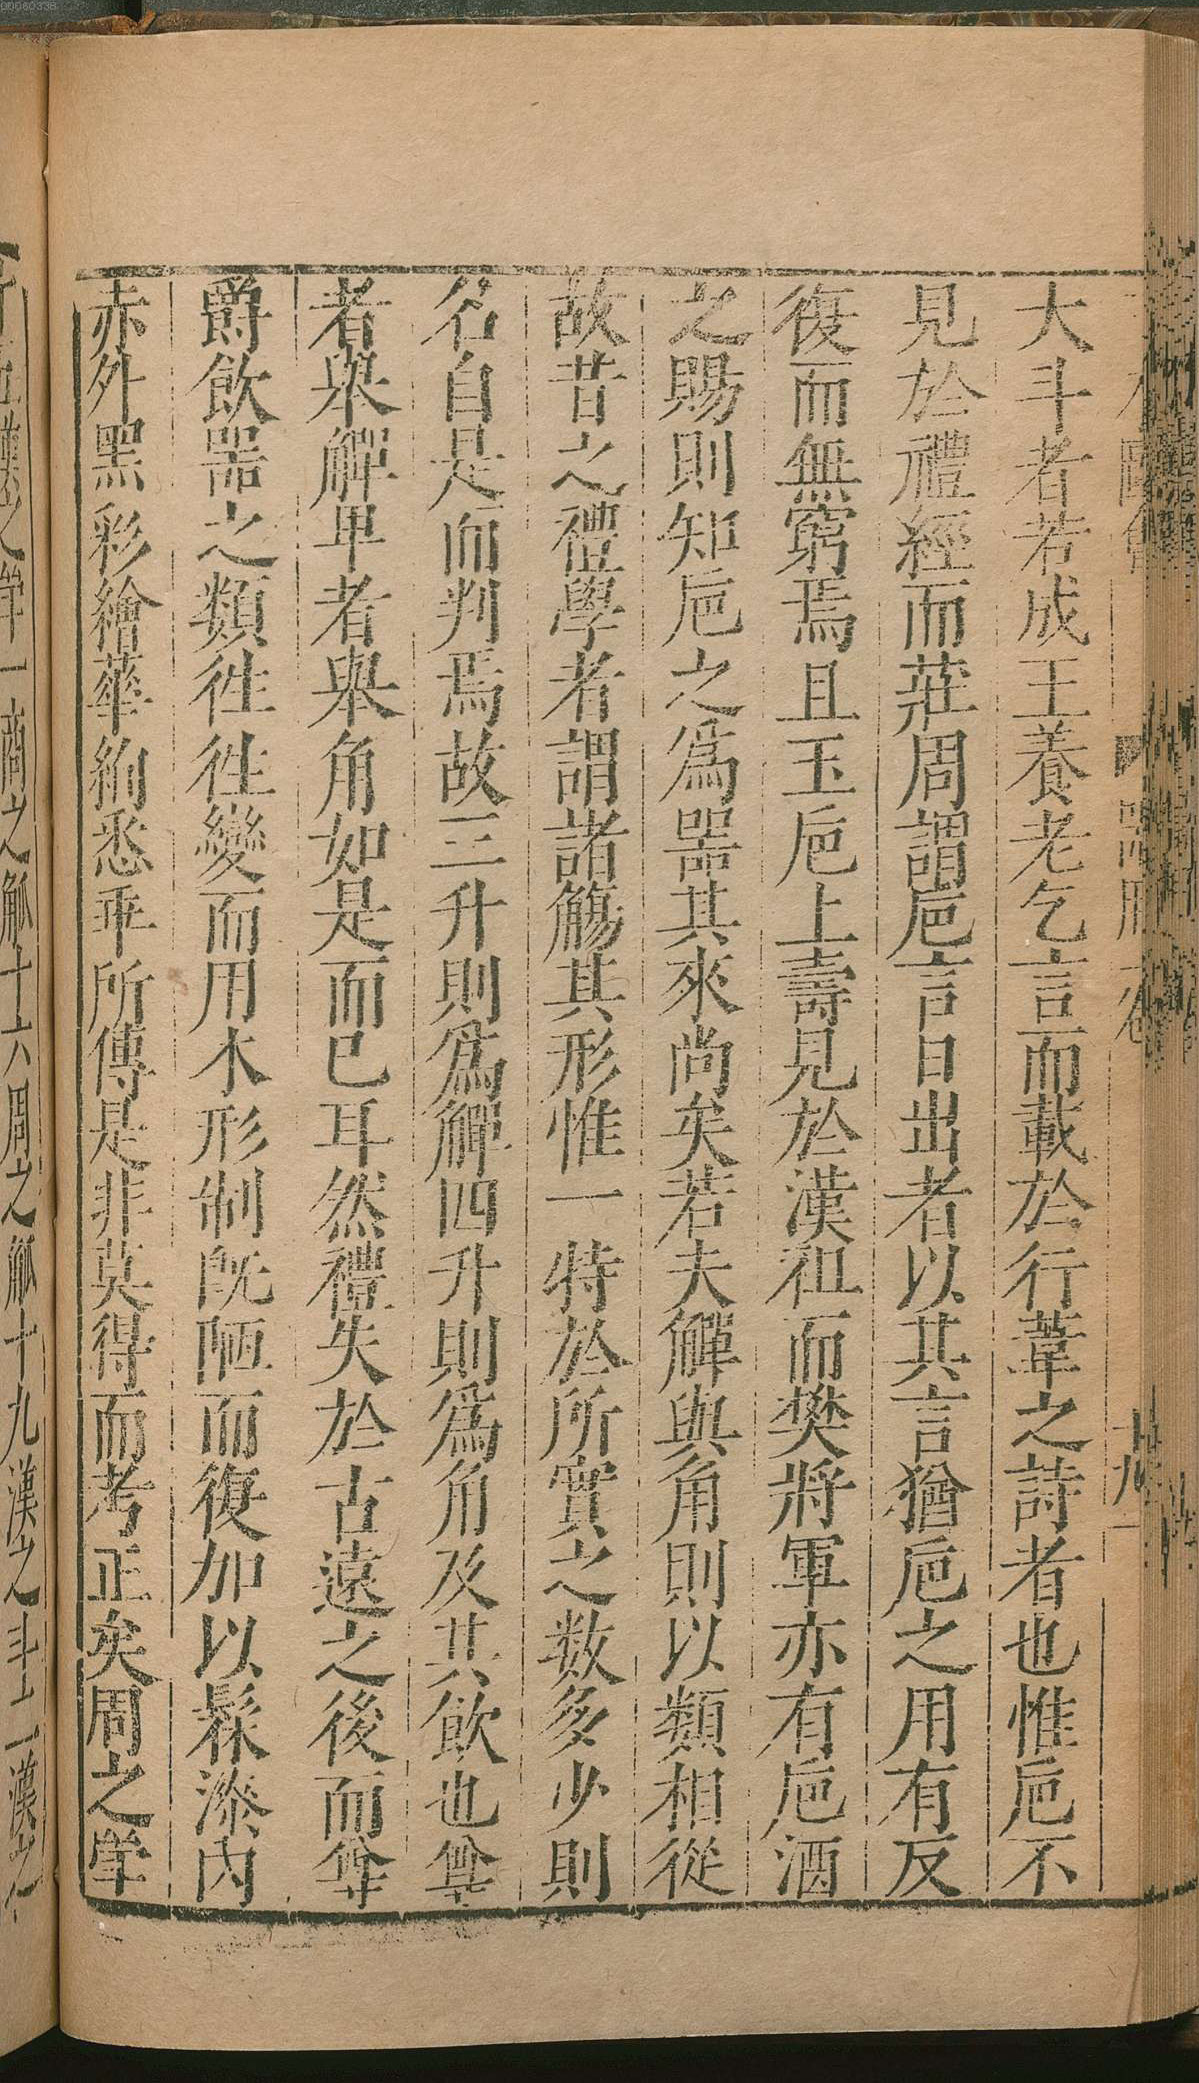 大斗者若成王養老乞言而載於行葦之詩者也惟巵不
見於禮經而莊周謂巵言日出者以其言猶巵之用有反
復而無窮焉且玉巵上壽見於漢祖而樊將軍亦有巵酒
之賜則知巵之爲器其來尚矣若夫觶與角則以類相從
故昔之禮學者謂諸觴其形惟一特於所實之数多少則
名自是而判焉故三升則爲觶四升則爲角及其飲也尊
者舉觶卑者舉角如是而已耳然禮失於古遠之後而尊
爵飲器之類徃徃變而用木形制既陋而復加以髹漆内
赤外黑彩繪華絢悉乖所傳是非莫得而考正矣周之斝
漢之斝一商之觚十六周之觚十九漢之斗一漢之
00080338